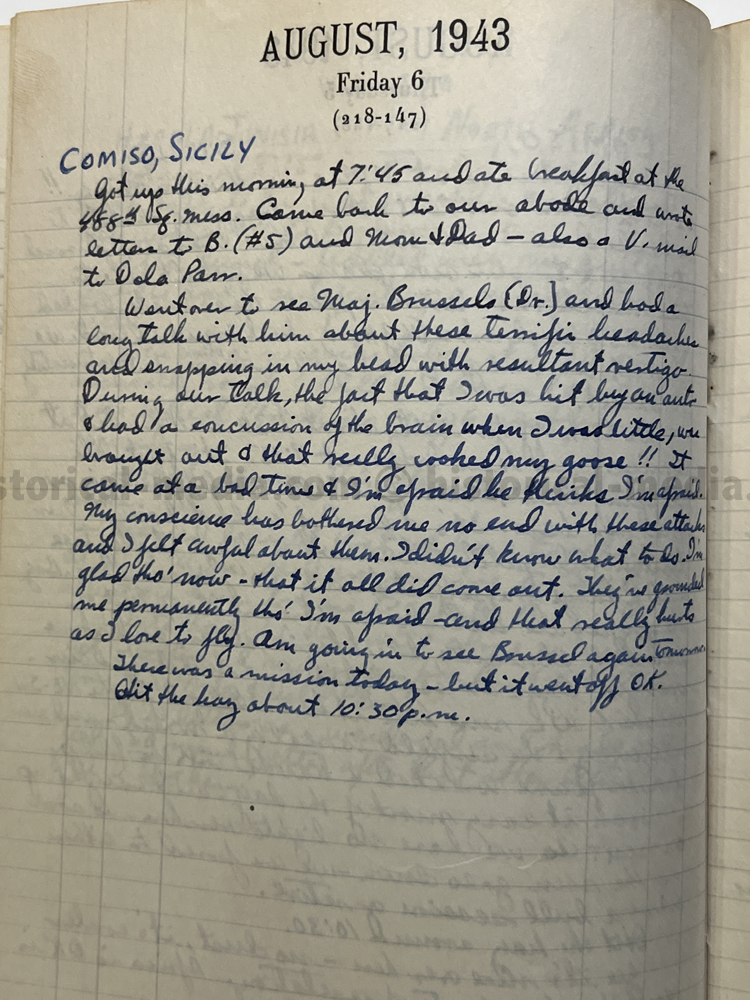 AUGUST, 1943
Friday 6
(218-147)
COMISO, SICILY
Got up this morning at 7:45 and ate breakfast at the
488th Sq. mess. Came back to our abode and wrote
letters to B. (#5) and Mom & Dad – also a V. mail
to Dola Parr.
Went over to see Maj. Brussels (Dr.) and had a
long talk with him about these terrific headaches
and snapping in my head with resultant vertigo.
During our talk, the fact that I was hit by an auto
& had a concussion of the brain when I was little, was
brought out & that really cooked my goose!! It
came at a bad time & I'm afraid he thinks I'm afraid.
My conscience has bothered me no end with these attacks
and I felt awful about them. I didn't know what to do. I'm
glad tho' now – that it all did come out. They've grounded
me permanently tho' I'm afraid – and that really hurts
as I love to fly. Am going in to see Brussel again tomorrow.
There was a mission today – but it went off OK.
Hit the hay about 10:30 p.m.